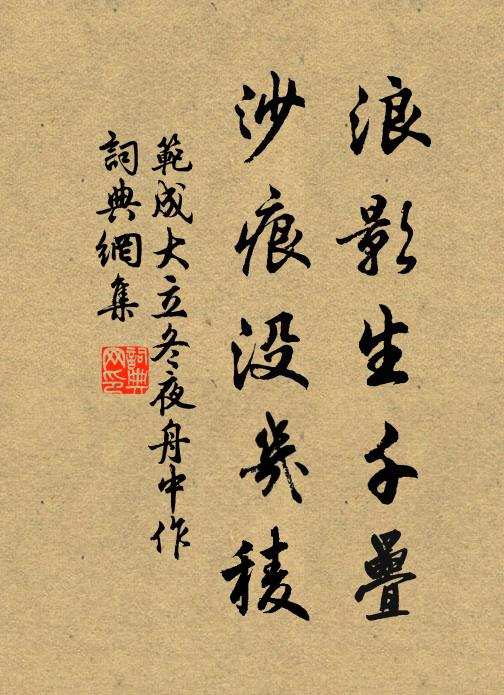 浪影生千疊
沙痕没幾稜
範成大立冬夜舟中作
詞典網集
詞典网印